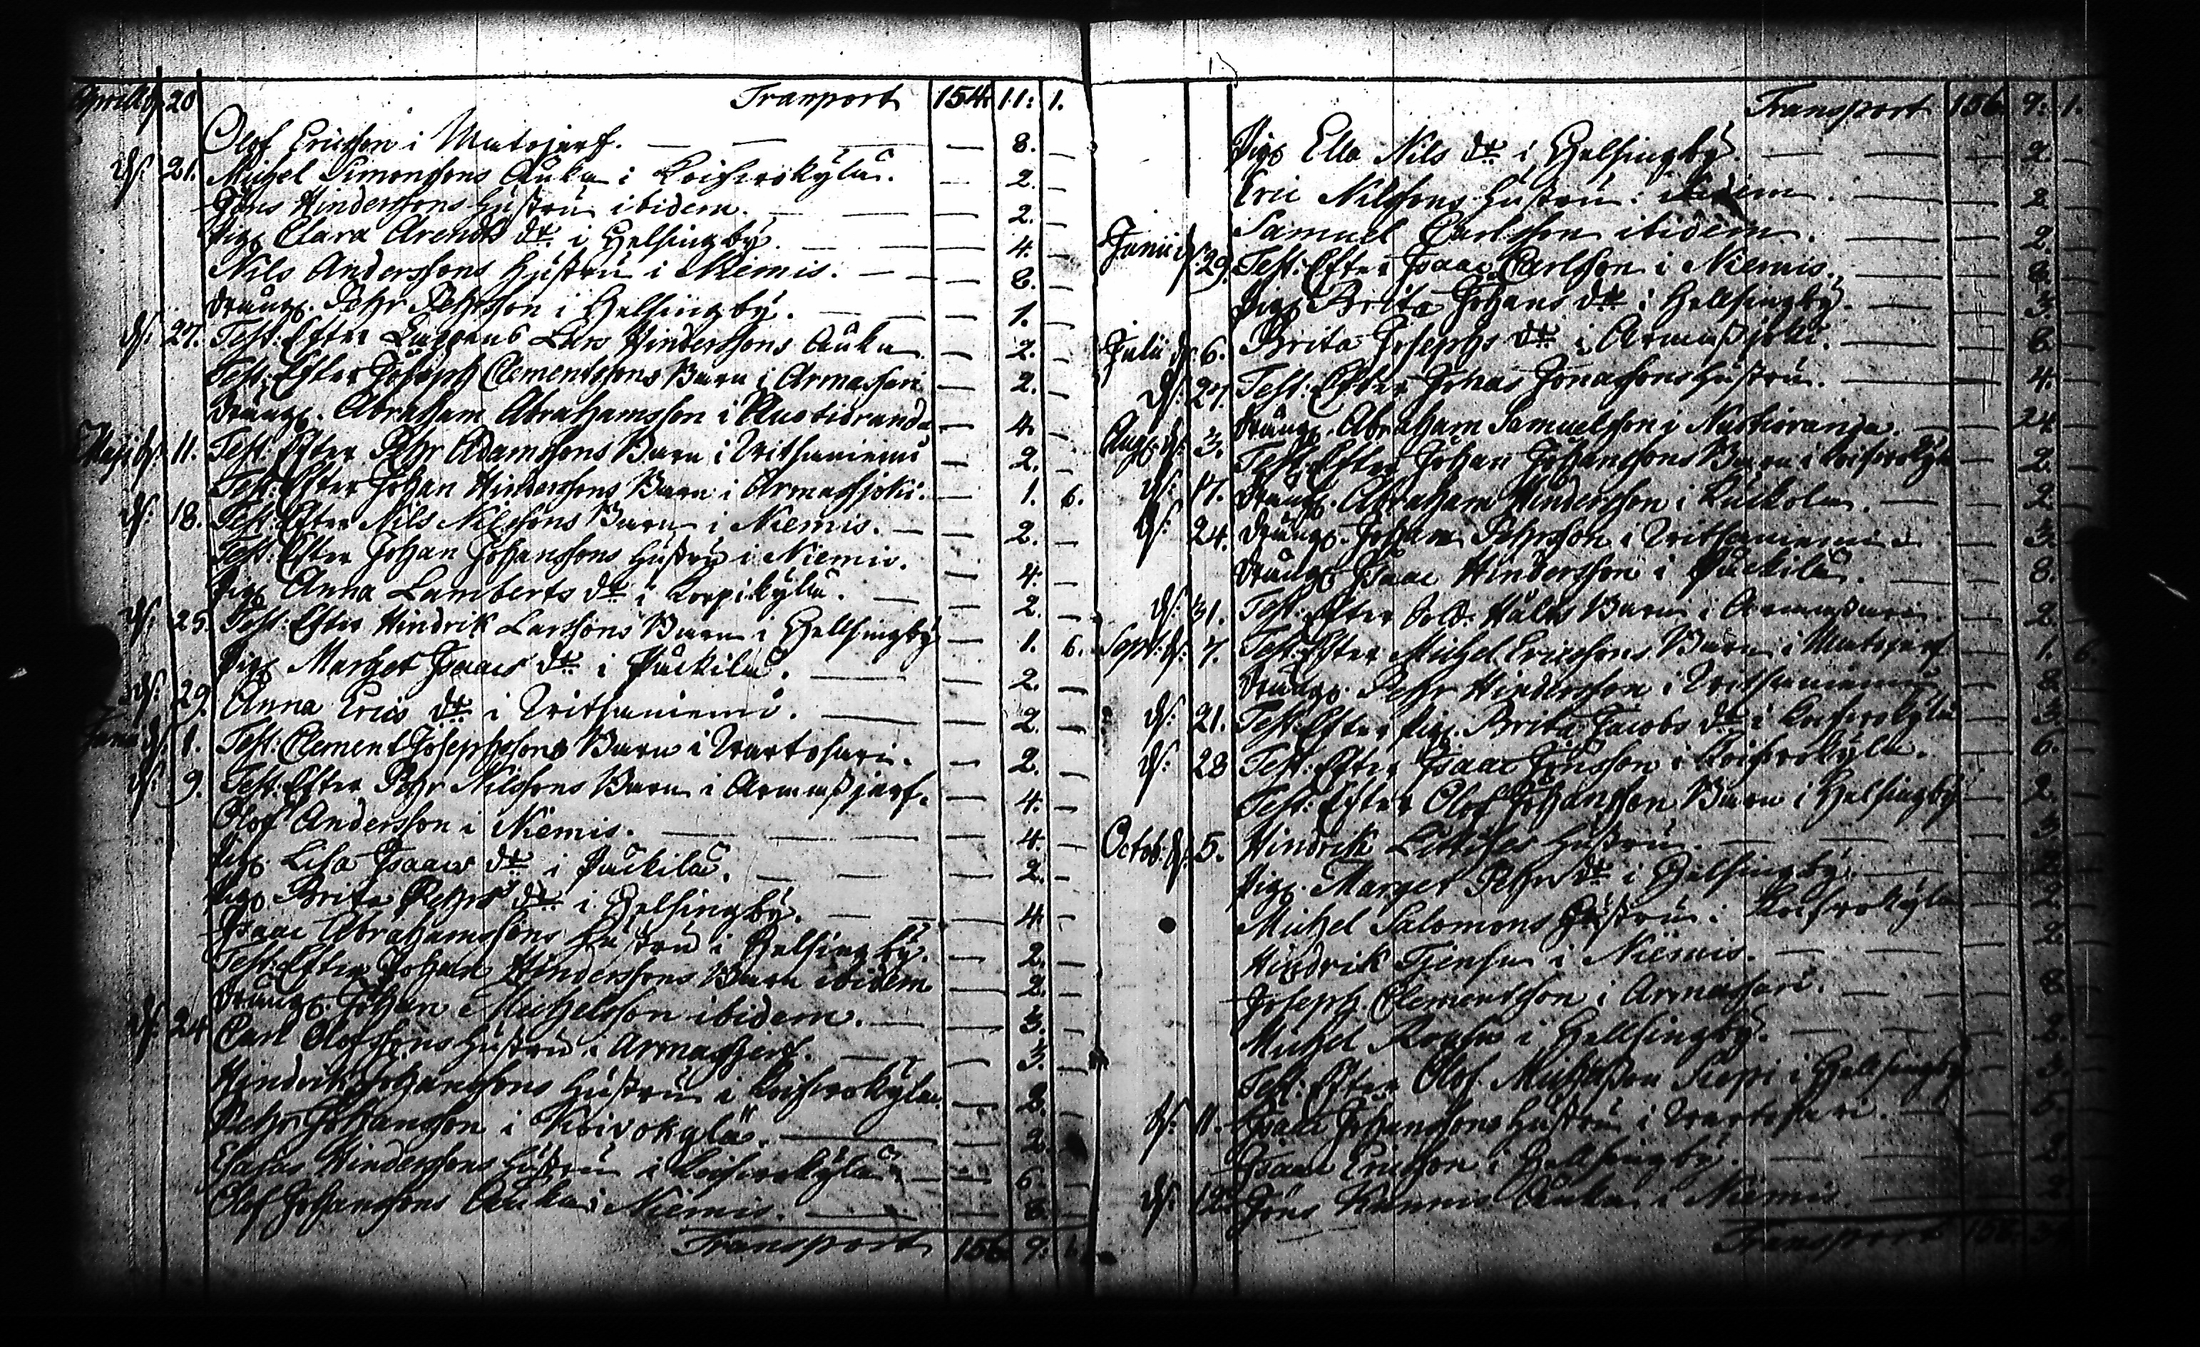 Aprill d. 20 Transport 154. 11. 1.
Olof Ericsson i Matojarf. — 8. —
d: 21. Michel Simonssons Änka i Koifwokylä. — 2. —
Jöns Hinderssons Hustru ibidem. — 2. —
Pig. Clara Arendts dr. i Helsingby. — 4. —
Nils Anderssons Hustru i Niemis. — 8. —
Dräng. Pehr Pehrsson i Helsingby. — 1. —
d: 27. Test: Efter Lars Hinderssons Änka — 2. —
Test: Efter Joseph Clementssons Barn i Armassari — 2. —
Dräng. Abraham Abrahamsson i — 4. —
Maji d. 11. Test: Efter Pehr Adamssons Barn i Writsaniemi — 2. —
Test: Efter Johan Hinderssons Barn i Armassjoki. — 1. 6.
d: 18. Test: Efter Nils Nilssons Barn i Niemis. — 2. —
Test: Efter Johan Johanssons Hustru i Niemis. 4. —
Pig. Anna Lamberts dr. i Korpikylä. — 2. —
d: 25. Test: Efter Hindrik Larssons Barn i Hellsingby — 1. 6.
Pig. Marget Isaacs dr. i Päckilä. — 2. —
d: 29. Anna Erics dr. i Writsaniemi. — 2. —
Junii d. 1. Test: Clement Josephssons Barn i Wartosari. — 2. —
d: 9. Test: Efter Pehr Nilssons Barn i Armassjärf. — 4. —
Olof Andersson i Niemis. — 4. —
Pig. Lisa Isaacs dr. i Päckilä. — 2. —
Pig. Brita Pehrs dr. i Helsingby. — 4. —
Isaac Abrahamssons Hustru i Helsingby. — 2. —
Test: Efter Johan Hinderssons Barn ibidem — 2. —
Dräng. Johan Michelsson ibidem. — 3. —
d: 24. Carl Olofssons Hustru i Armassjerf. — 3. —
Hindrik Johanssons Hustru i Koifwokylä. — 2. —
Pehr Johansson i Koivokylä. — 2. —
Esaias Hinderssons Hustru i Koifwokylä. — 6. —
Olof Johanssons Änka i Niemis. — 8. —
Transport 156. 9. 1.
Transport 156. 9. 1.
Pig. Ella Nils dr. i Helsingby. — 2. —
Eric Nilssons Hustru ibidem. — 2. —
Samuel Carlsson ibidem. — 2. —
Junii d. 29. Test: Efter Isaac Carlsson i Niemis. — 8. —
Pig. Brita Johans dr. i Hellsingby. — 3. —
Julii d. 6. Brita Josephs dr. i Armassjoki. — 8. —
d: 27. Test: Efter Johas Jonassons Hustru. — 4. —
Dräng. Abraham Samuelsson i — 24. —
Aug. d. 3. Test: Efter Johan Johanssons Barn i Koifwokylä — 2. —
d: 17. Dräng. Abraham Hindersson i — 2. —
d: 24. Dräng. Johan Pehrsson i Writsaniemi — 3. —
Dräng. Isaac Hindersson i Päckilä. — 8. —
d: 31. Test: Efter Barn i Armassari — 2. —
Sept: d: 7. Test: Efter Michel Ericssons Barn i Matojarf — 1. 6.
Dräng. Pehr Hindersson i Writsaniemi — 8. —
d: 21. Test: Efter Pig. Brita Jacobs dr. i Koifwokylä — 3. —
d: 28 Test: Efter Isaac Jönsson i Koifwokylä. — 6. —
Test: Efter Olof Johansson Barn i Helsingby — 2. —
Octob: d. 5. Hindrik Hustru. — 3. —
Pig. Marget Pehrs dr. i Helsingby. — 2. —
Michel Salomons Hustru i Koifwokylä — 2. —
Hindrik i Niemis. — 2. —
Joseph Clementsson i Armassari. — 8. —
Michel i Hellsingby. — 2. —
Test: Efter Olof Michelsson i Hellsingby — 3. —
d: 11. Isaac Johanssons Hustru i Wartosari. — 5. —
Isaac Ericsson i Hellsingby. — 2. —
d: 12. Jöns Änka i Niemis. — 2. —
Transport